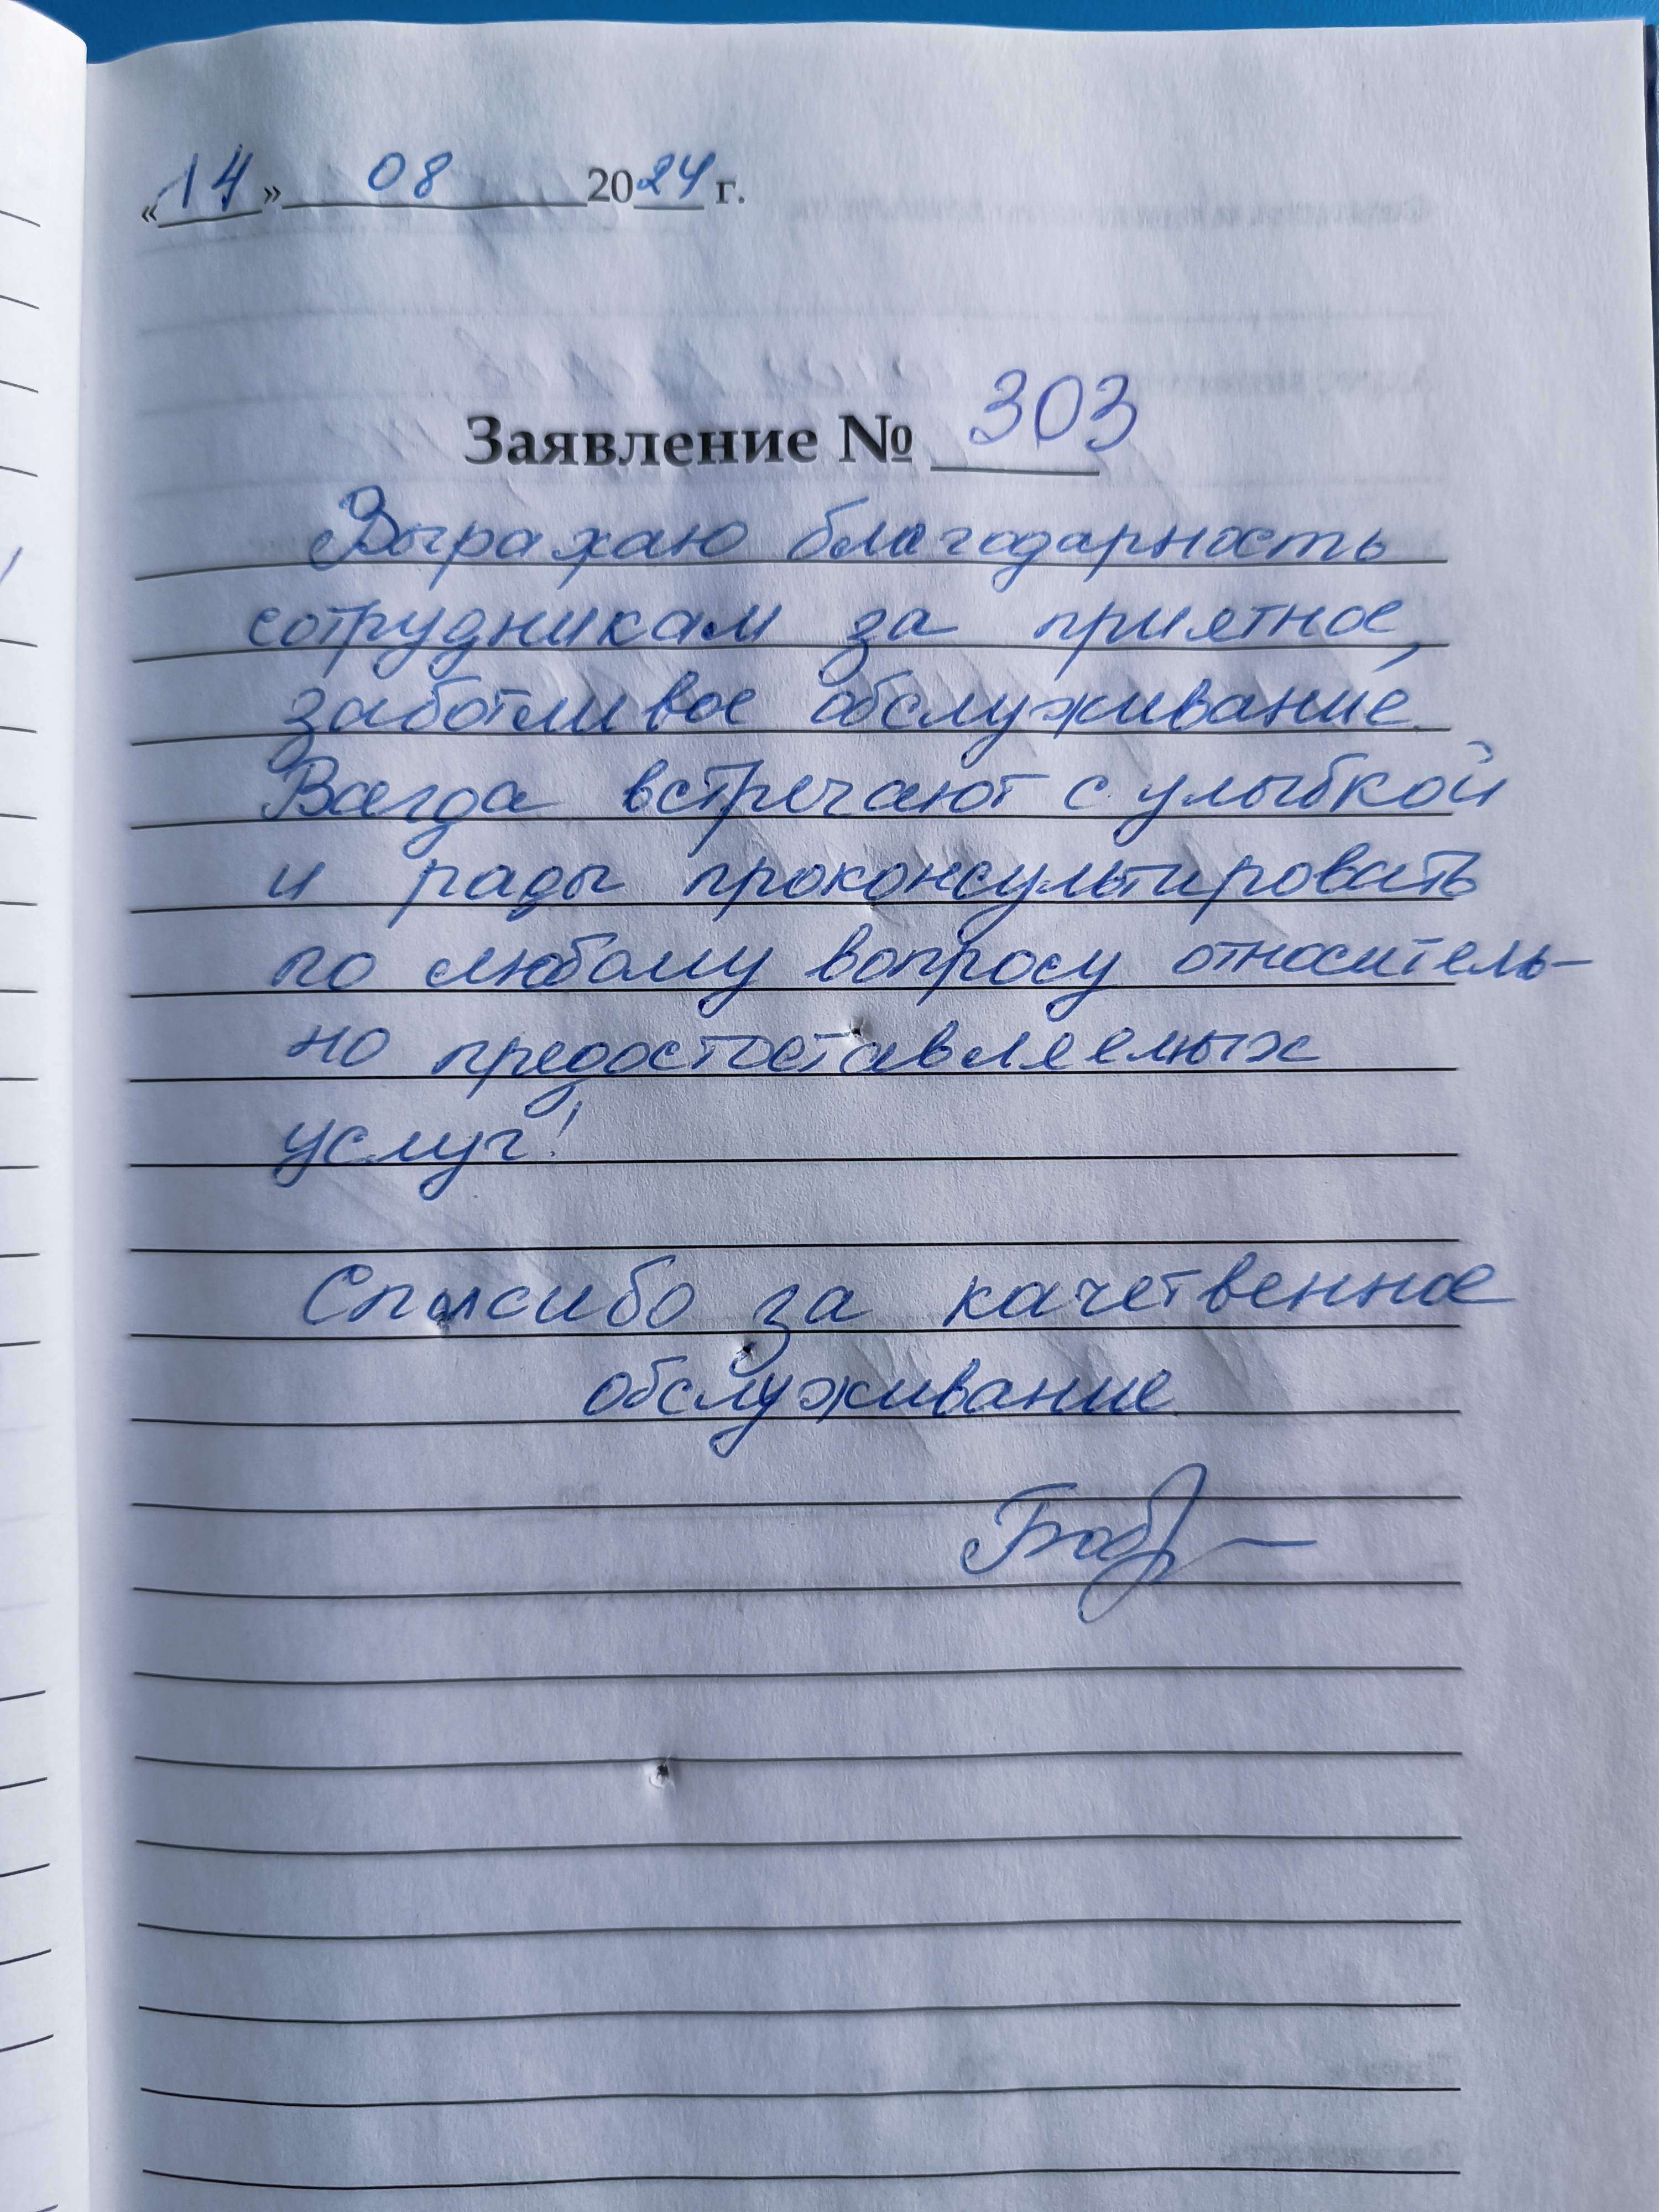 «14» 08 2024 г.
Заявление № 303
Выражаю благодарность
сотрудникам за приятное,
заботливое обслуживание.
Всегда встречают с улыбкой
и рады проконсультировать
по любому вопросу относитель-
но предостоставляемых
услуг!
Спасибо за качетвенное
обслуживание.